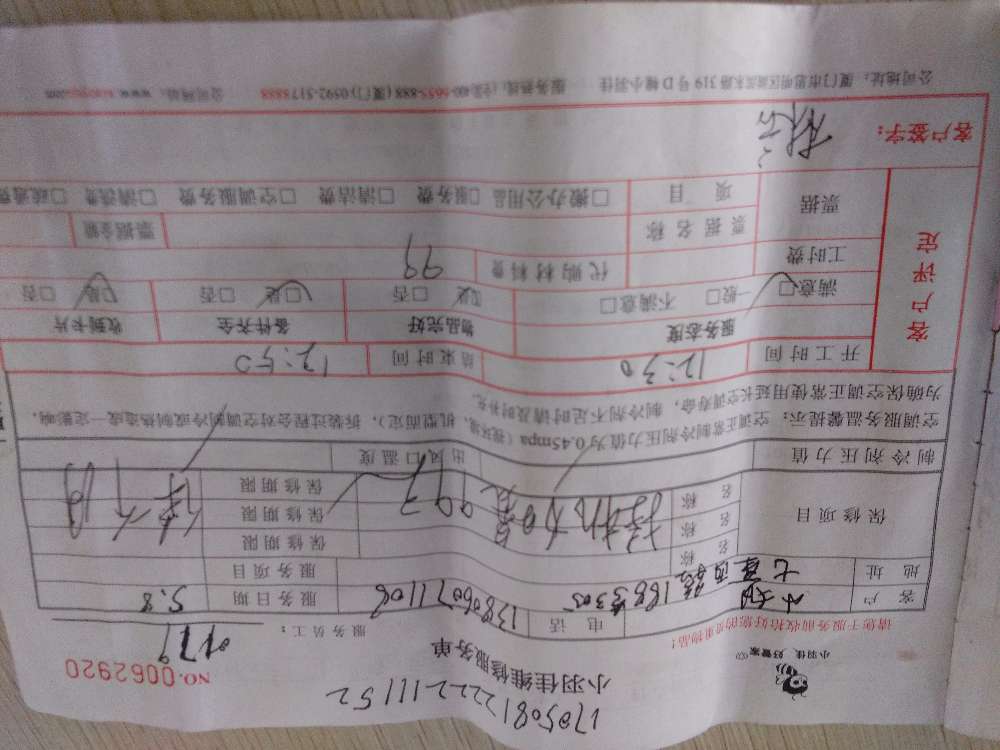 170508122211152
小羽佳维修服务单
NO.0062920
小羽佳，好管家
请您于服务前收拾好您的贵重物品！
服务员工：
客户 电话 13806071108 服务日期 5.8
地址 服务项目
保修项目 名称 保修期限
名称 保修期限
名称 保修期限
制冷剂压力值 出风口温度
空调服务温馨提示：空调正常制冷剂压力值为0.45mpa（视环境、机型而定），拆装过程会对空调制冷或制热造成一定影响，
为确保空调正常使用延长空调寿命，制冷剂不足时请及时补充。
客户评定
开工时间 12:30 结束时间 12:50
服务态度 物品完好 备件齐全 收到卡片
满意□ 一般□ 不满意□ 是□ 否□ 是□ 否□ 是□ 否□
工时费 代购材料费 99
票据 票据名称 票据金额
项目 □搬办公用品 □服务费 □清洁费 □空调服务费 □清洗费 □疏通费
客户签字：
公司地址：厦门市思明区 319号D幢小羽佳 服务热线：(全国)400-6655-888 (厦门)0592-5178888 公司网站：www.